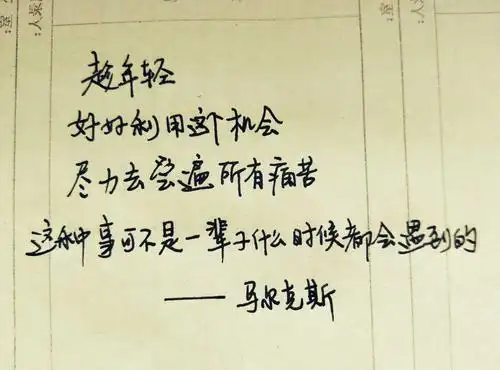 趁年轻
好好利用这个机会
尽力去尝遍所有痛苦
这种事可不是一辈子什么时候都会遇到的
—— 马尔克斯